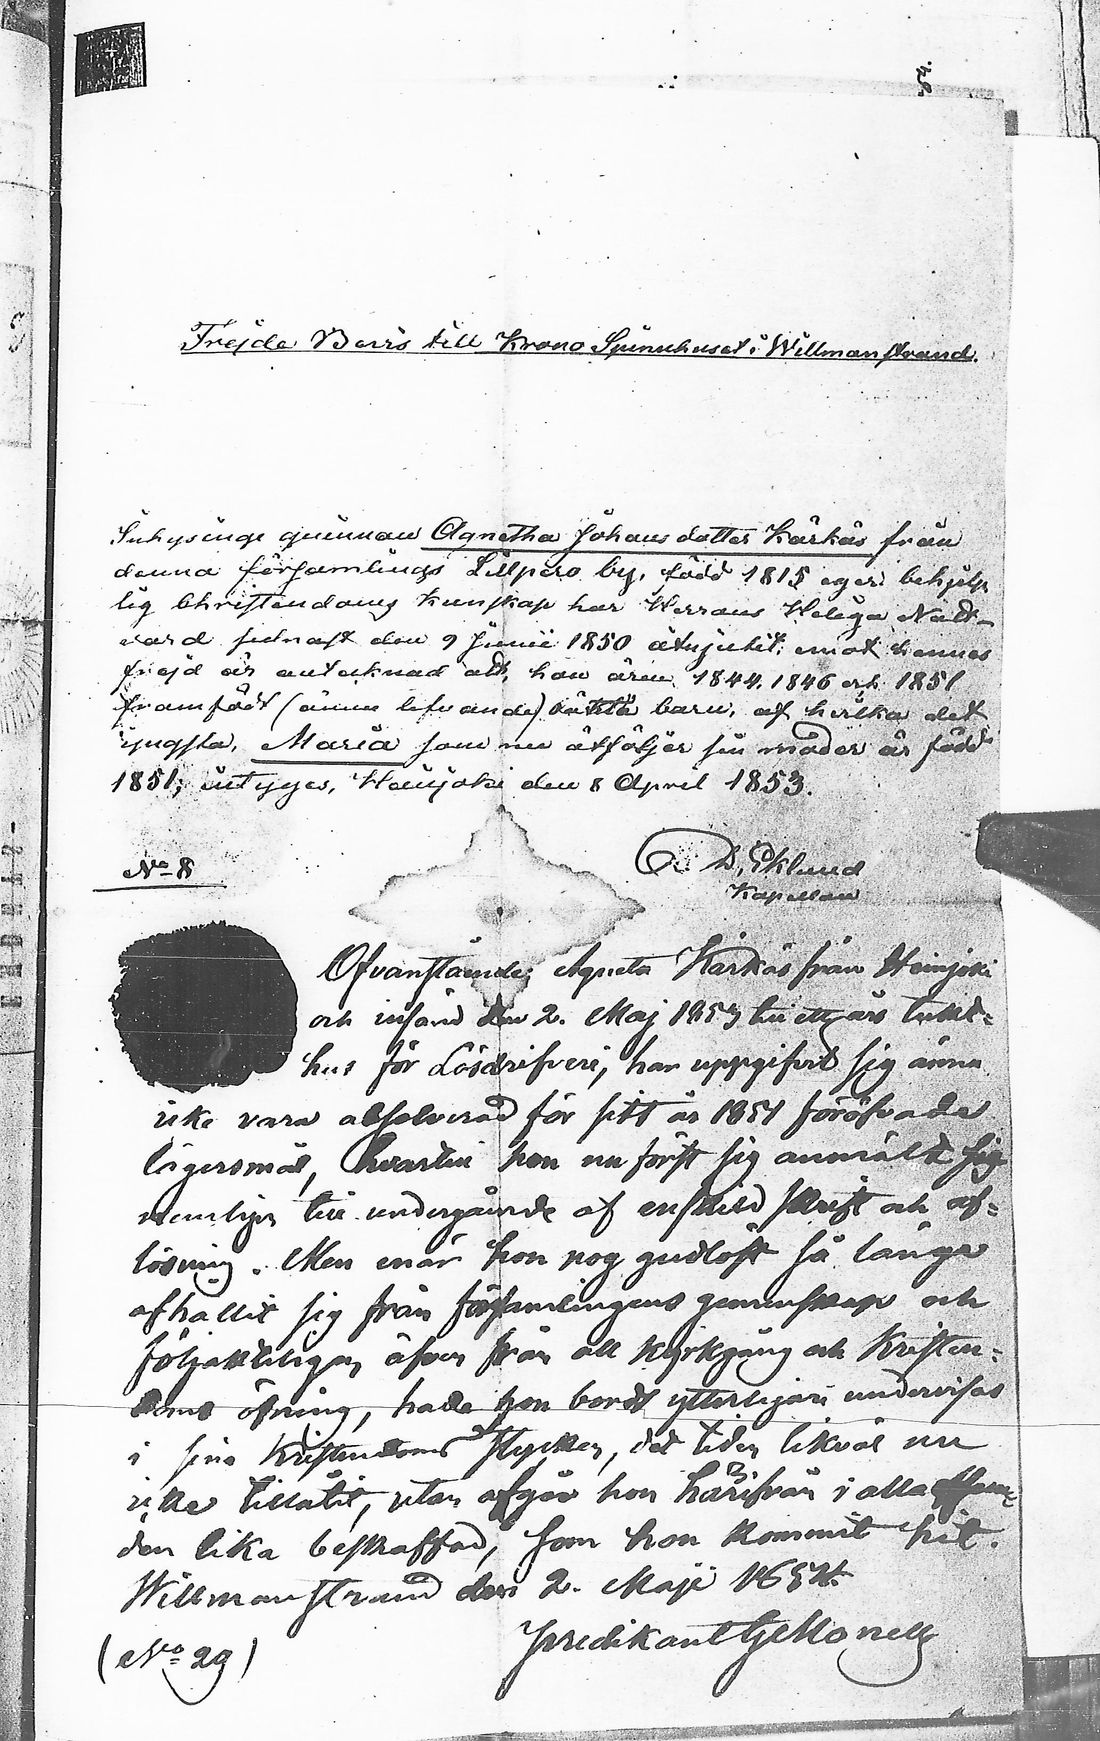 Frejde Bevis till Krono Spinnhuset i Willmanstrand.
Inhysinge qvinnan Agnetha Johansdotter Kärkäs från
denna församlings Lillpero by, född 1815 eger behjelp
lig Christendoms kunskap har Herrans Heliga Natt-
vard sednast den 9 Junii 1850 åtnjutit; emot hennes
frejd är antecknad att, hon åren 1844, 1846 och 1851
framfödt (ännu lefvande) oäkta barn, af hvilka det
yngsta, Maria som nu åtföljer sin moder är född
1851; intygas, Heinjoki den 8 April 1853.
No 8
D. Eklund
Kapellan
Ofvanstående Agneta Kärkäs från Heinjoki
och insänd den 2. Maj 1853 till ett års tukt-
hus för Lösdrifveri, har uppgifvit sig ännu
icke vara absolverad för sitt år 1851 föröfvade
lägersmål, hvartill hon nu först sig anmält sig
nemligen till undergående af enskild skrift och af-
lösning. Men enär hon nog gudlöst så länge
afhållit sig från församlingens gemenskap och
följaktligen äfven från all kyrkgång och Kristen-
doms öfning, hade hon bordt ytterligare undervisas
i sina Kristendoms stycken, det tiden likväl nu
icke tillåtit, utan afgår hon härifrån i alla
den lika beskaffad, som hon kommit hit.
Willmanstrand den 2. Maji 1854.
Predikant G Monell
(No 29)